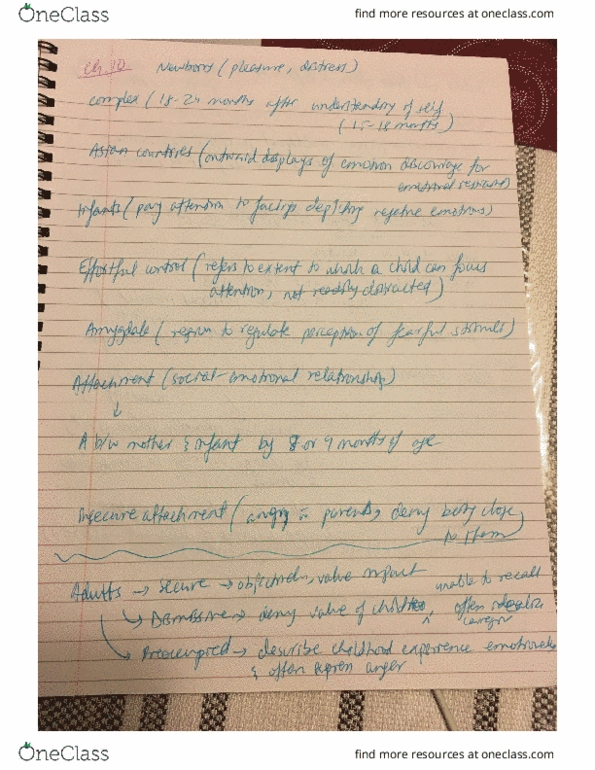 OneClass
find more resources at oneclass.com
Ch. 10 Newborns (pleasure, distress)
complex (18-24 months after understanding of self
(15-18 months)
Asian countries (outward displays of emotion discourage for
emotional restraint)
Infants (pay attention to facings depicting negative emotions)
Effortful control (refers to extent to which a child can focus
attention, not readily distracted)
Amygdala (region to regulate perception of fearful stimuli)
Attachment (social-emotional relationship)
↓
A b/w mother & infant by 8 or 9 months of age
Insecure attachment (angry = parents, deny being close
to them)
Adults → secure → objectively, value impact
unable to recall
→ Dismissive → deny value of child, often idealize
caregiver
→ Preoccupied → describe childhood experience emotionally
& often express anger
OneClass
find more resources at oneclass.com